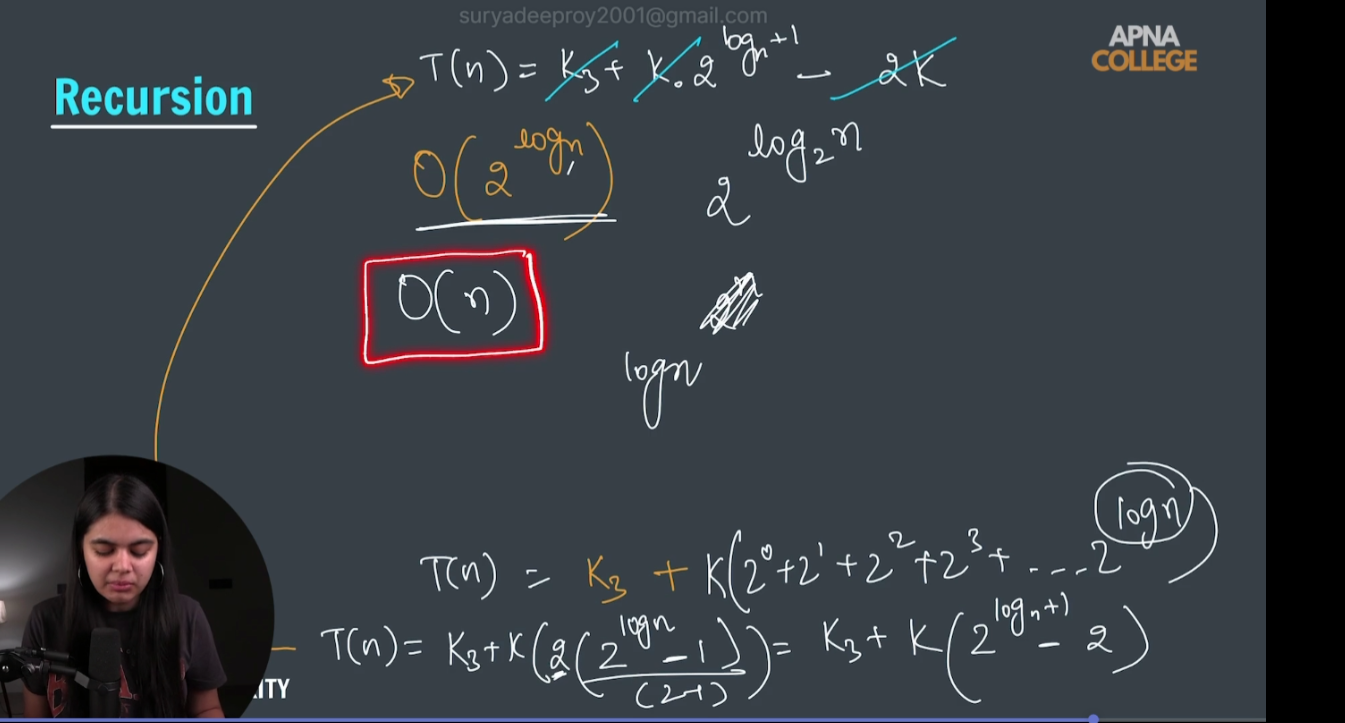 suryadeeproy2001@gmail.com
APNA
COLLEGE
Recursion
T(n) = K₃ + K.2^(logn+1) - 2K
O(2^(logn))
2^(log₂n)
O(n)
logn
T(n) = K₃ + K(2⁰+2¹+2²+2³+ ---- 2^(logn))
T(n) = K₃+K(2(2^(logn)-1)/(2-1)) = K₃+ K(2^(logn+1) - 2)
ITY